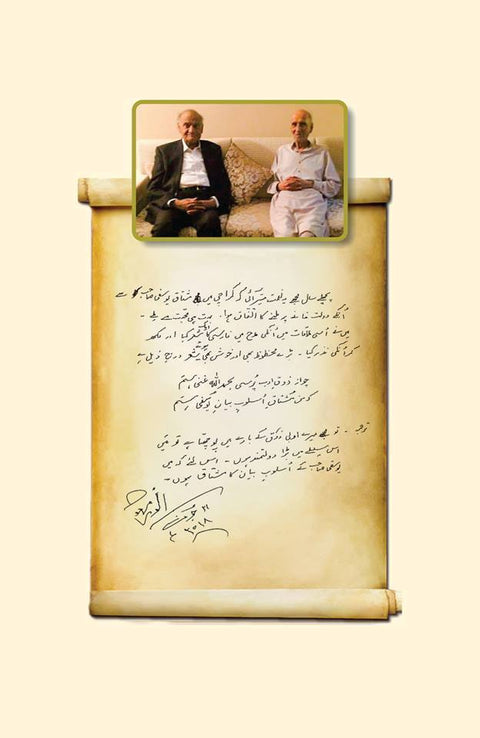 پچھلے سال مجھے یہ نعمت میسر آئی کہ کراچی میں مشتاق یوسفی صاحب سے
اُنکے دولت خانہ پر ملنے کا اتفاق ہوا۔ بہت ہی محبت سے ملے۔
میں نے اُسی ملاقات میں اُنکی مدح میں فارسی کا ایک شعر کہا اور لکھ
کر اُنکی نذر کیا۔ بڑے محظوظ بھی اور خوش بھی ہوئے شعر درج ذیل ہے
چو از ذوقِ ادب پُرسی بحمداللہ غنی ہستم
کہ من مشتاقِ اسلوبِ بیانِ یوسفی ہستم
ترجمہ۔ تو مجھے میرے ادبی ذوق کے بارے میں پوچھتا ہے تو میں
اس سلسلے میں بڑا دولتمند ہوں۔ اس لئے کہ میں
یوسفی صاحب کے اُسلوبِ بیان کا مشتاق ہوں۔
انور مسعود
۲۱ جون
۲۰۱۸ء